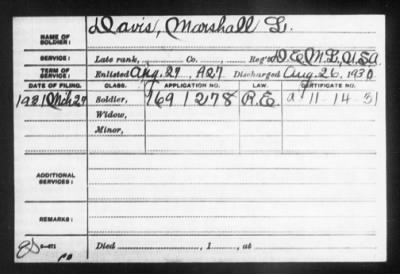 NAME OF SOLDIER: Davis, Marshall G.
SERVICE: Late rank, Co., Reg't D.E.M.L., U.S.A.
TERM OF SERVICE: Enlisted Aug. 27, 1927 Discharged Aug. 26, 1930
DATE OF FILING. CLASS. APPLICATION NO. LAW. CERTIFICATE NO.
1931 Mch 27 Soldier, 1691278 R.E. a 11-14-31
Widow,
Minor,
ADDITIONAL SERVICES:
REMARKS:
Died , 1 , at